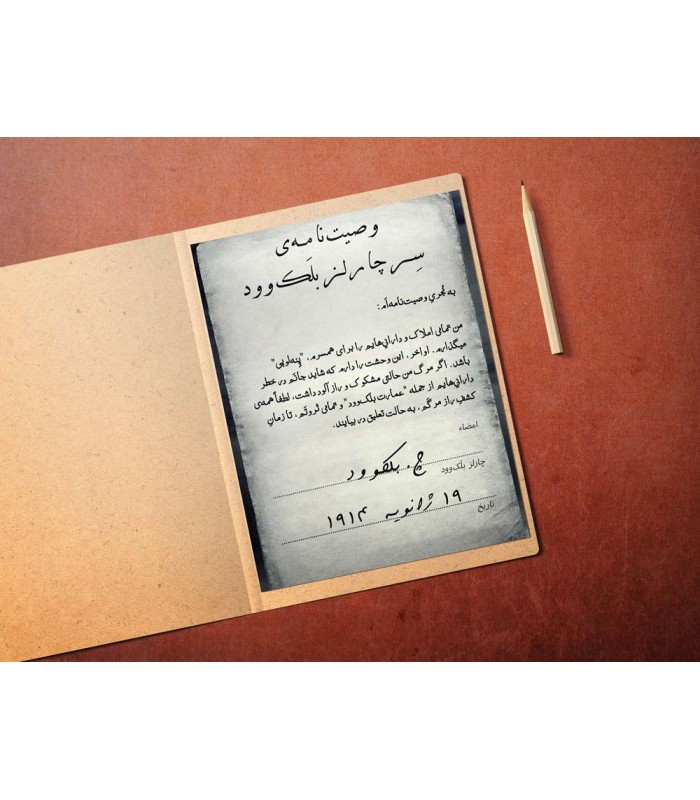 وصیت‌نامه‌ی
سِر چارلز بلَک‌وود
به مُجریِ وصیت‌نامه‌ام:
من تمامی املاک و دارائی‌هایم را برای همسرم، "پنه‌لوپی"
میگذارم. اواخر، این وحشت را دارم که شاید جانم در خطر
باشد. اگر مرگ من حالتی مشکوک و رازآلود داشت، لطفاً همه‌ی
دارائی‌هایم از جمله "عمارت بلک‌وود" و تمامی ثروتم، تا زمانِ
کشفِ رازِ مرگم، به حالت تعلیق در بیایند.
امضاء
چ. بلکوود
چارلز بلک‌وود
۱۹ ژانویه ۱۹۱۴
تاریخ